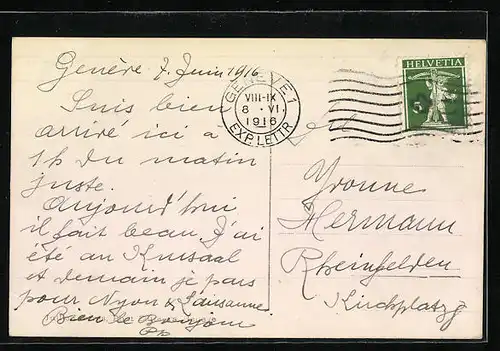 Genève 7 Juin 1916
Suis bien
arrivé ici à
1 h du matin
juste.
Aujourd'hui
il fait beau. J'ai
été au Kursaal
et demain je pars
pour Nyon & Lausanne.
Bien le Bonjour
GENÈVE 1
VIII-IX
8 . VI.
1916
EXP. LETTR
HELVETIA
5
Yvonne
Hermann
Rheinfelden
Kirchplatz